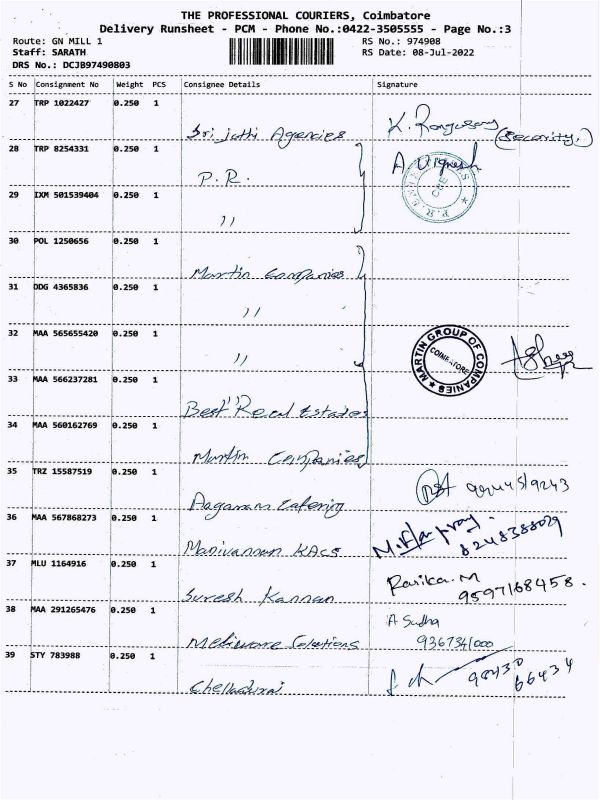 THE PROFESSIONAL COURIERS, Coimbatore
Delivery Runsheet - PCM - Phone No.:0422-3505555 - Page No.:3
Route: GN MILL 1 RS No.: 974908
Staff: SARATH RS Date: 08-Jul-2022
DRS No.: DCJB97490803
S No Consignment No Weight PCS Consignee Details Signature
27 TRP 1022427 0.250 1
Sri Jothi Agencies (Security)
28 TRP 8254331 0.250 1
P.R. A Vignesh
29 IXM 501539404 0.250 1
11
30 POL 1250656 0.250 1
Martin Companies
31 ODG 4365836 0.250 1
11
32 MAA 565655420 0.250 1
11
MARTIN GROUP OF COMPANIES
COIMBATORE
33 MAA 566237281 0.250 1
Best Real Estates
34 MAA 560162769 0.250 1
Martin Companies
35 TRZ 15587519 0.250 1
Aaganam Catering
36 MAA 567868273 0.250 1
Manivannan 8248388029
37 MLU 1164916 0.250 1
Suresh Kannan 9597168458.
38 MAA 291265476 0.250 1 A Sudha
Mediware Solutions 9367341000
39 STY 783988 0.250 1
Chelladurai 98430
66434